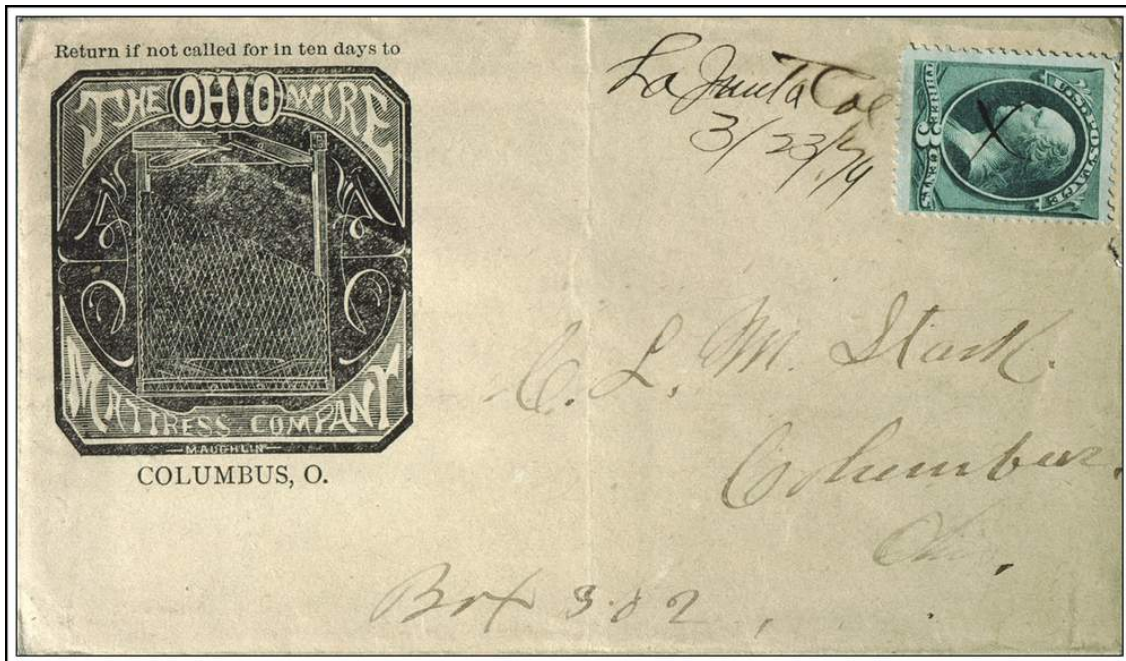 Return if not called for in ten days to
THE OHIO WIRE
MATTRESS COMPANY
MAUGHLIN
COLUMBUS, O.
La Junta Col
3/23/74
U.S. POSTAGE
C. L. M. Stark.
Columbus,
Ohio,
Box 382,